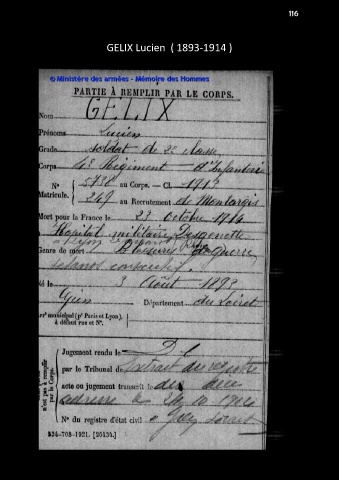 116
GELIX Lucien ( 1893-1914 )
© Ministère des armées - Mémoire des Hommes
PARTIE À REMPLIR PAR LE CORPS.
Nom GELIX
Prénoms Lucien
Grade soldat de 2e classe
Corps 4e Régiment d'Infanterie
N° 5738 au Corps. — Cl. 1913
Matricule. 249 au Recrutement de Montargis
Mort pour la France le 23 octobre 1914
à Hôpital militaire Desgenettes
Genre de mort Blessures de guerre
tétanos consécutif
Né le 3 Août 1893
Gien Département du Loiret
Arrt municipal (pr Paris et Lyon),
à défaut rue et N°.
n'est pas à remplir
par le Corps.
Jugement rendu le
par le Tribunal de Extrait du registre
acte ou jugement transcrit le des
adresse le
N° du registre d'état civil à Loiret
534-708-1921. [26434.]